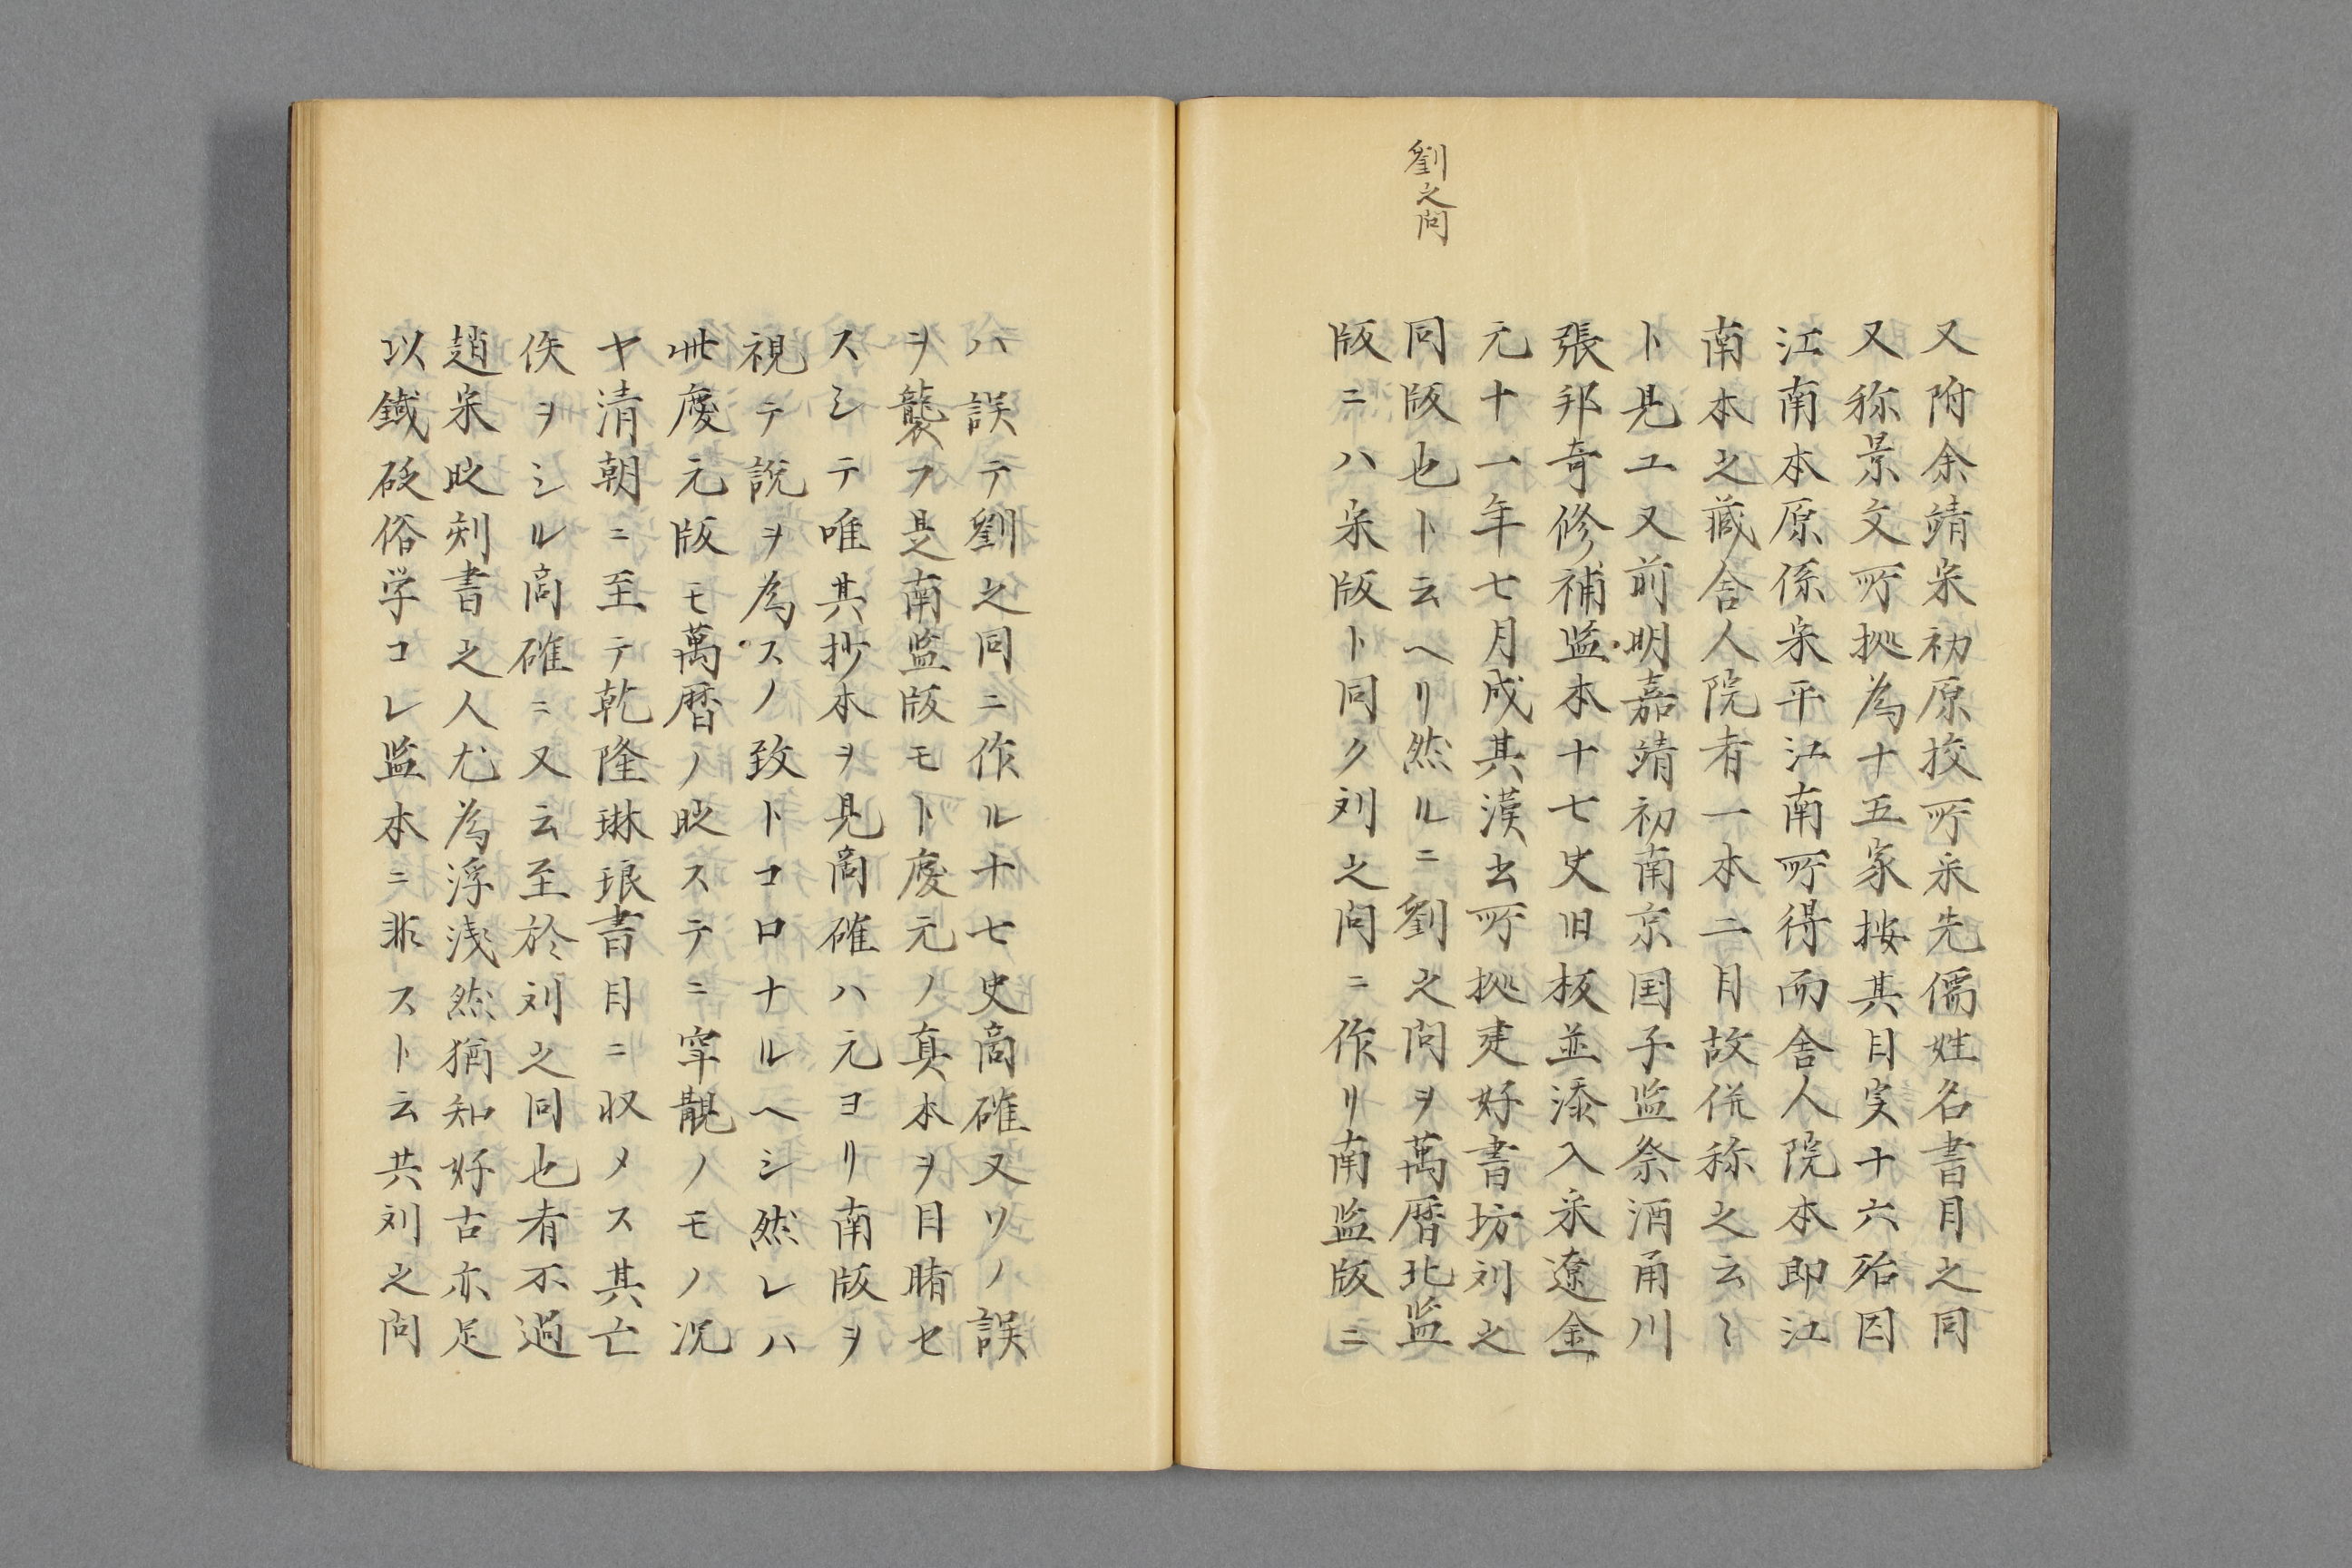 劉之問
又附余靖宋初原挍所采先儒姓名書目之同
又称景文所拠為十五家按其目実十六殆因
江南本原係宋平江南所得而舎人院本即江
南本之蔵舎人院者一本二目故侂称之云〻
ト見エ又前明嘉靖初南京国子監祭酒甬川
張邦奇修補監本十七史旧板並添入宋遼金
元十一年七月成其漢書所拠建好書坊刘之
同版也ト云ヘリ然ルニ劉之問ヲ萬暦北監
版ニハ宋版ト同ク刘之問ニ作リ南監版ニ
ハ誤テ劉之同ニ作ル十七史商確又ソノ誤
ヲ襲フ是南監版モト慶元ノ真本ヲ目睹セ
スシテ唯其抄本ヲ見商確ハ元ヨリ南版ヲ
視テ説ヲ為スノ致トコロナルヘシ然レハ
卋慶元版モ萬暦ノ時ステニ罕覯ノモノ况
ヤ清朝ニ至テ乾隆琳琅書目ニ収メス其亡
佚ヲシル商確ニ又云至於刘之同也者不過
趙宋時刻書之人尤為浮浅然猶知好古亦足
以鍼砭俗学コレ監本ニ非スト云共刘之問